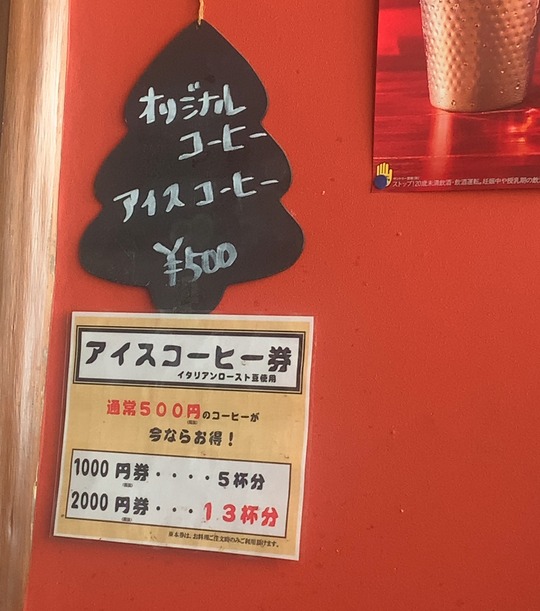 オリジナル
コーヒー
アイスコーヒー
¥500
ストップ!20歳未満飲酒・飲酒運転。妊娠中や授乳期の飲
アイスコーヒー券
イタリアンロースト豆使用
通常500円のコーヒーが
今ならお得!
1000円券・・・・5杯分
2000円券・・・13杯分
※本券は、お料理ご注文時のみご利用頂けます。